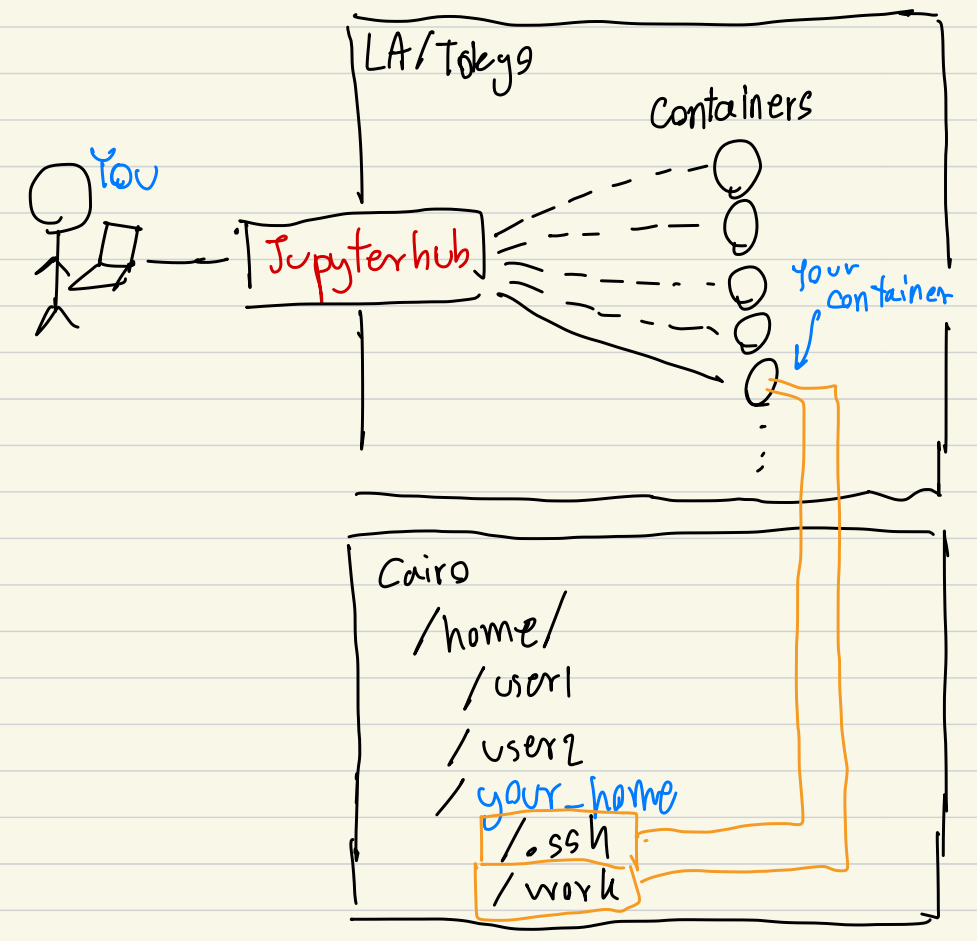 LA/Tokyo
Containers
You
Jupyterhub
your
container
Cairo
/home/
/user1
/user2
/your_home
/.ssh
/work